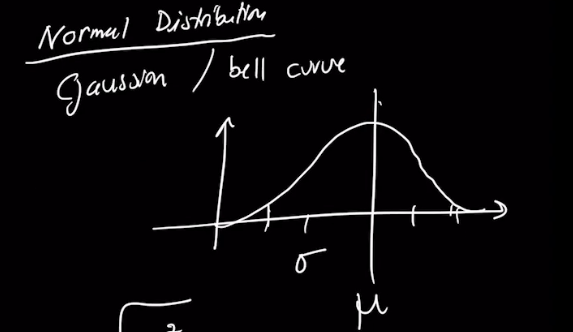 Normal Distribution
Gaussian / bell curve
σ
μ